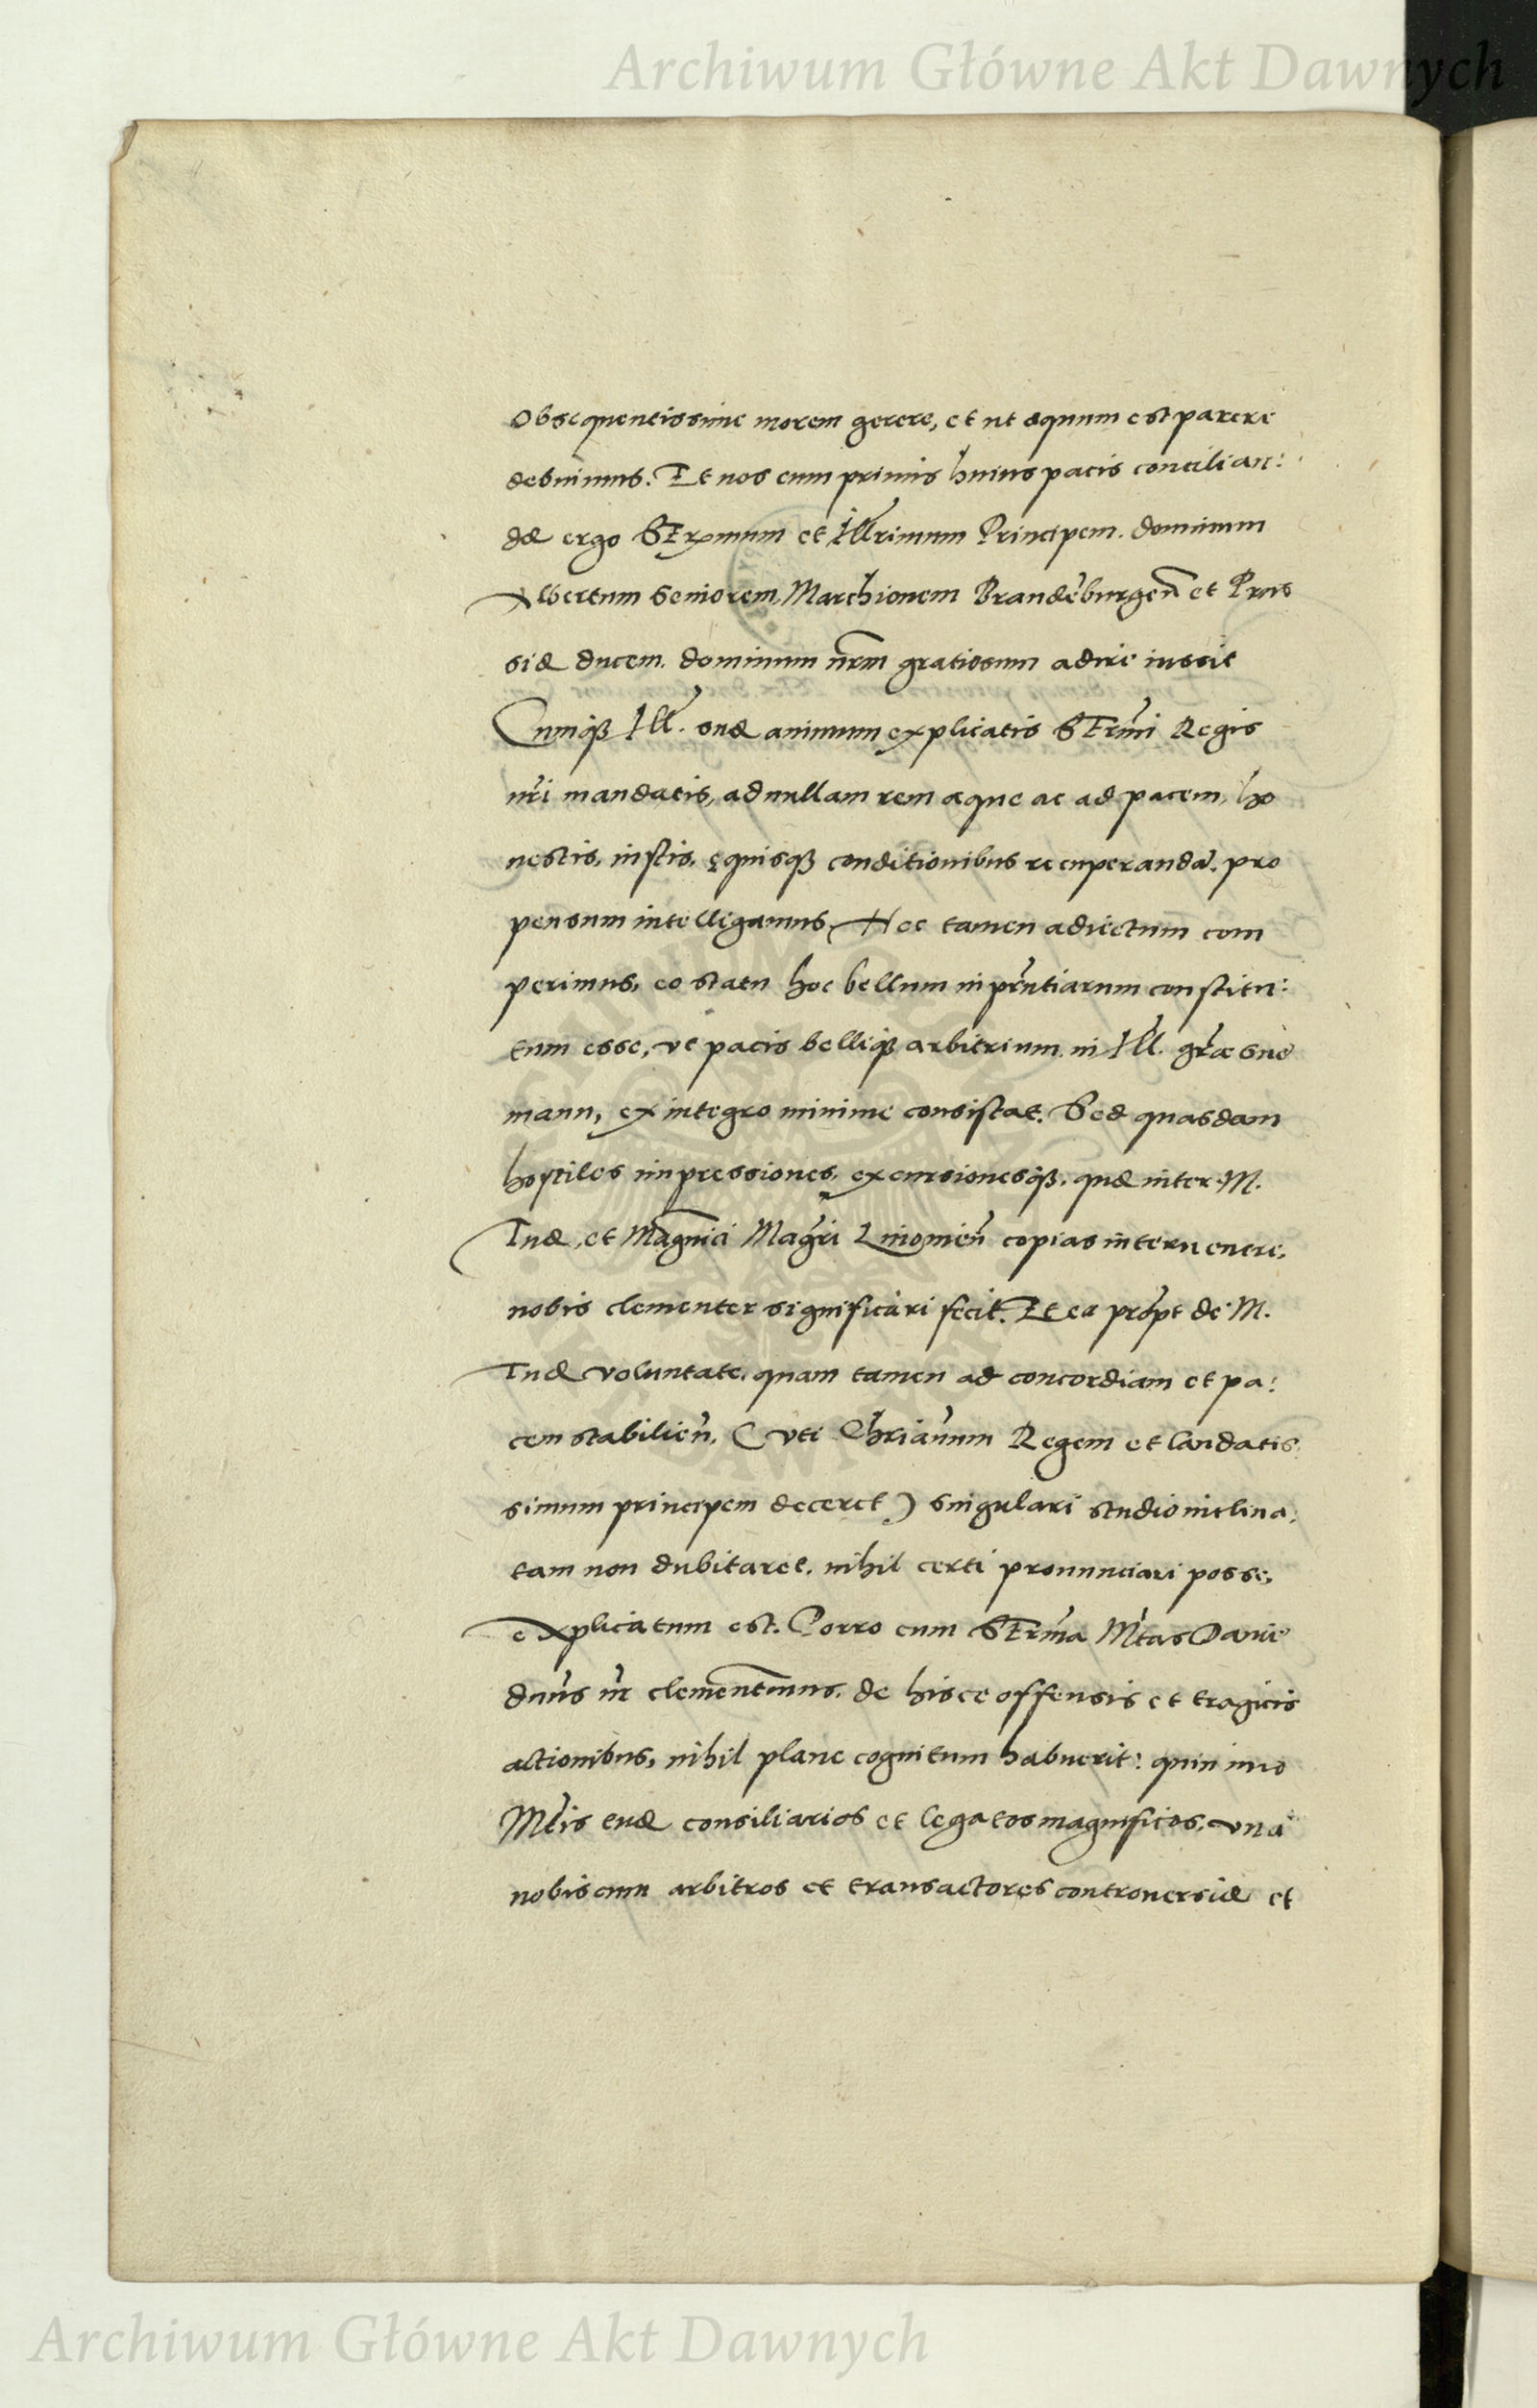 Archiwum Główne Akt Dawnych
Obsequentissime morem gerere, et ut æquum est parere
debuimus. Et nos cum primis huius pacis concilian:
dæ ergo SErmum et Illrimum Principem. dominum
Albertum Seniorem, Marchionem Brandeburgeñ et Prus
siæ ducem. dominum nrm gratiosum adire iussit
Cumqꝫ Ill. suæ animum explicatis SErmi Regis
nri mandatis, ad nullam rem æque ac ad pacem, ho
nestis, iustis, ęquisqꝫ conditionibus recuperandã. pro
pensum intelligamus, Hoc tamen adiectum com
perimus, eo statu hoc bellum in prntiarum constitu:
tum esse, ut pacis belliqꝫ arbitrium, in Ill. græ suę
manu, ex integro minime consistat. Sed quasdam
hostiles impressiones, excursionesqꝫ, quæ inter M.
Tuæ, et Magnici Magri Liuonieñ copias interuenere,
nobis clementer significari fecit. Et ea propt de M.
Tuæ voluntate, quam tamen ad concordiam et pa:
cem stabilień, (vti Chrianum Regem et laudatis
simum principem deceret) singulari studio inclina:
tam non dubitaret, nihil certi pronunciari posse,
explicatum est. Porro cum SErma Mtas Daniæ
dnus nr clementmus, de hisce offensis et tragicis
actionibus, nihil plane cognitum habuerit: quin imo
Mtis tuæ consiliarios et legatos magnificos, vna
nobiscum arbitros et transactores controuersiæ et
Archiwum Główne Akt Dawnych